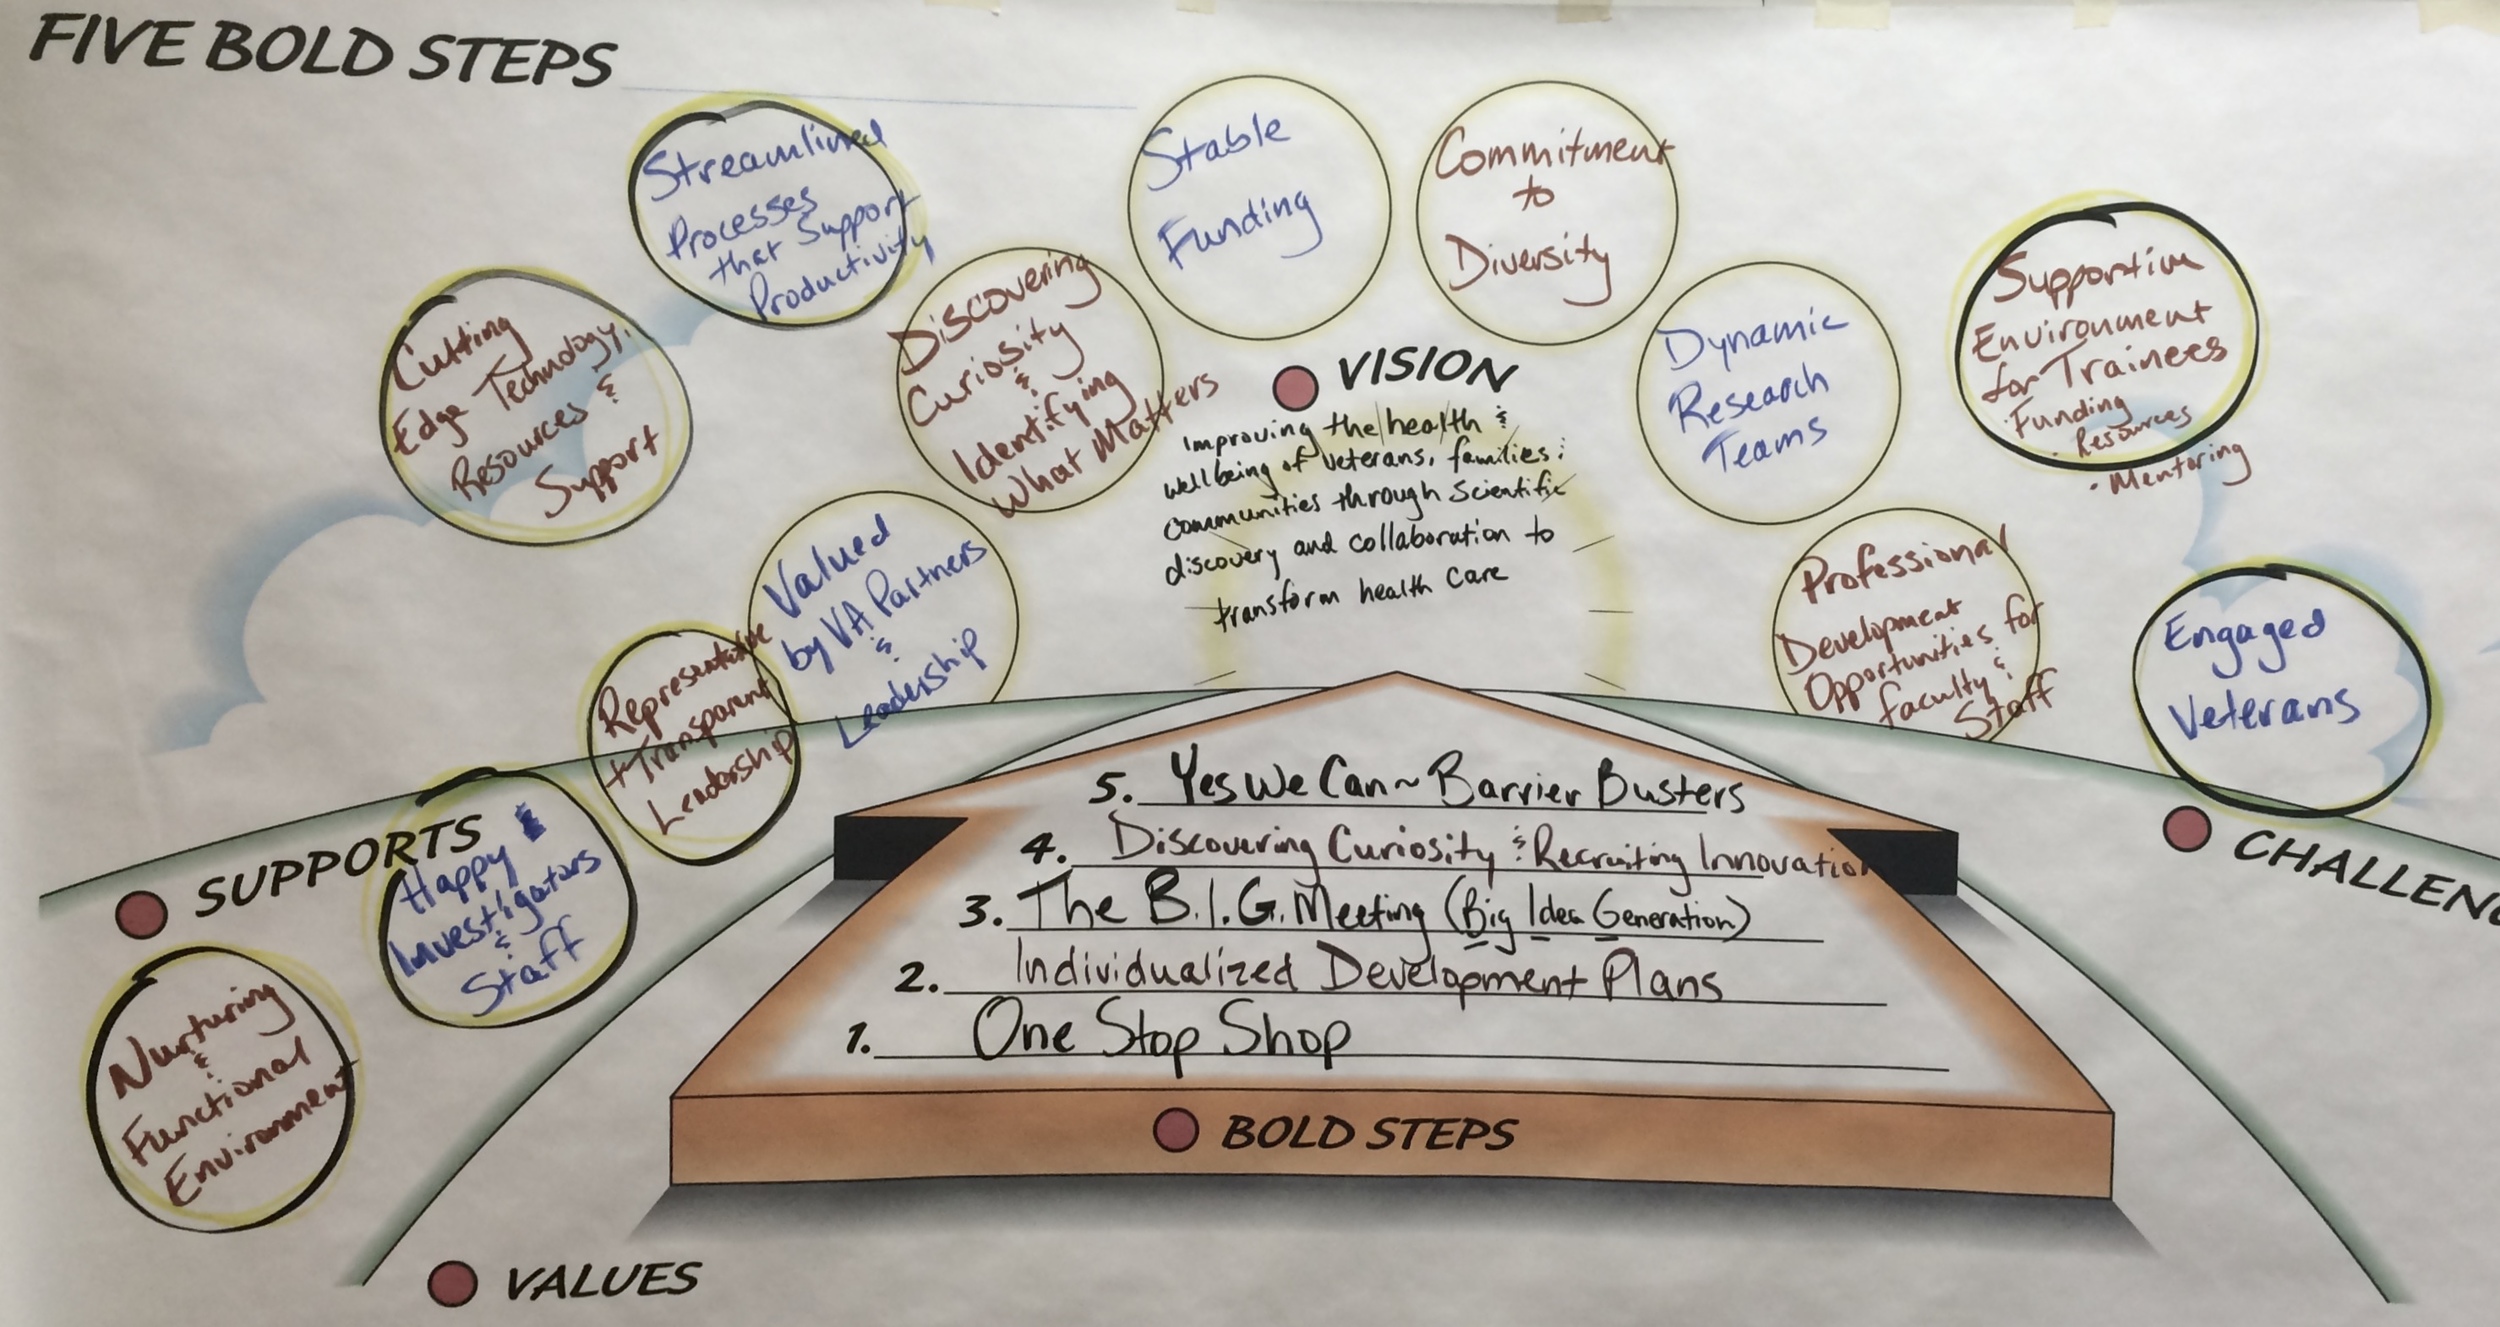 FIVE BOLD STEPS
Streamlined
Processes
that Support
Productivity
Stable
Funding
Commitment
to
Diversity
Cutting
Edge Technology,
Resources &
Support
Discovering
Curiosity
&
Identifying
What Matters
Dynamic
Research
Teams
Supportive
Environment
for Trainees
· Funding
· Resources
· Mentoring
VISION
Improving the health &
wellbeing of veterans, families &
communities through scientific
discovery and collaboration to
transform health care
Valued
by VA Partners
&
Leadership
Representative
+ Transparent
Leadership
Professional
Development
Opportunities for
faculty &
Staff
Engaged
Veterans
SUPPORTS
Happy
Investigators
&
Staff
Nurturing
&
Functional
Environment
CHALLENG
5. Yes We Can ~ Barrier Busters
4. Discovering Curiosity & Recruiting Innovation
3. The B.I.G. Meeting (Big Idea Generation)
2. Individualized Development Plans
1. One Stop Shop
BOLD STEPS
VALUES